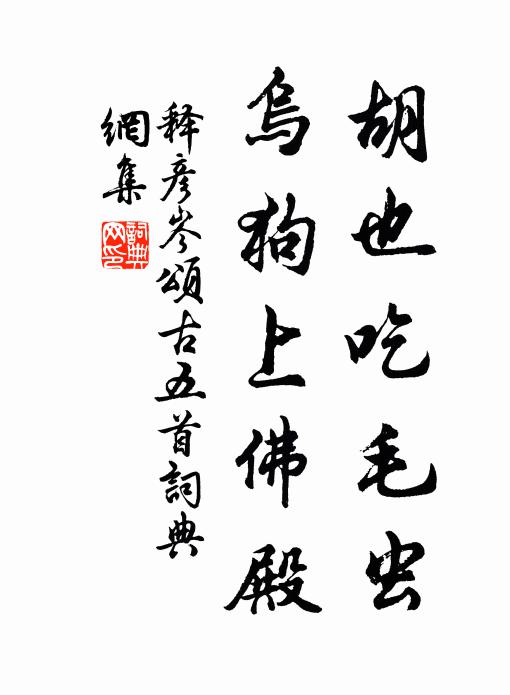 胡也吃毛虫
烏狗上佛殿
释彦岑頌古五首詞典
網集
詞典網印